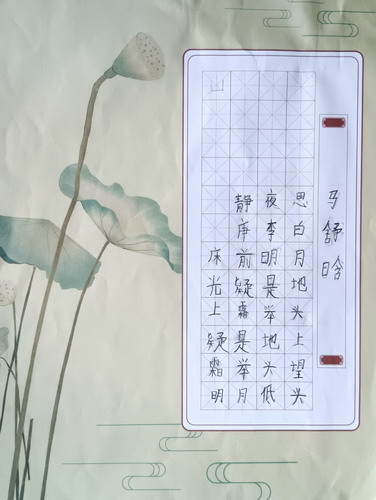 马舒晗
山
静夜思
李白
床前明月
光疑是地
上霜举头
疑是地上
霜举头望
明月低头